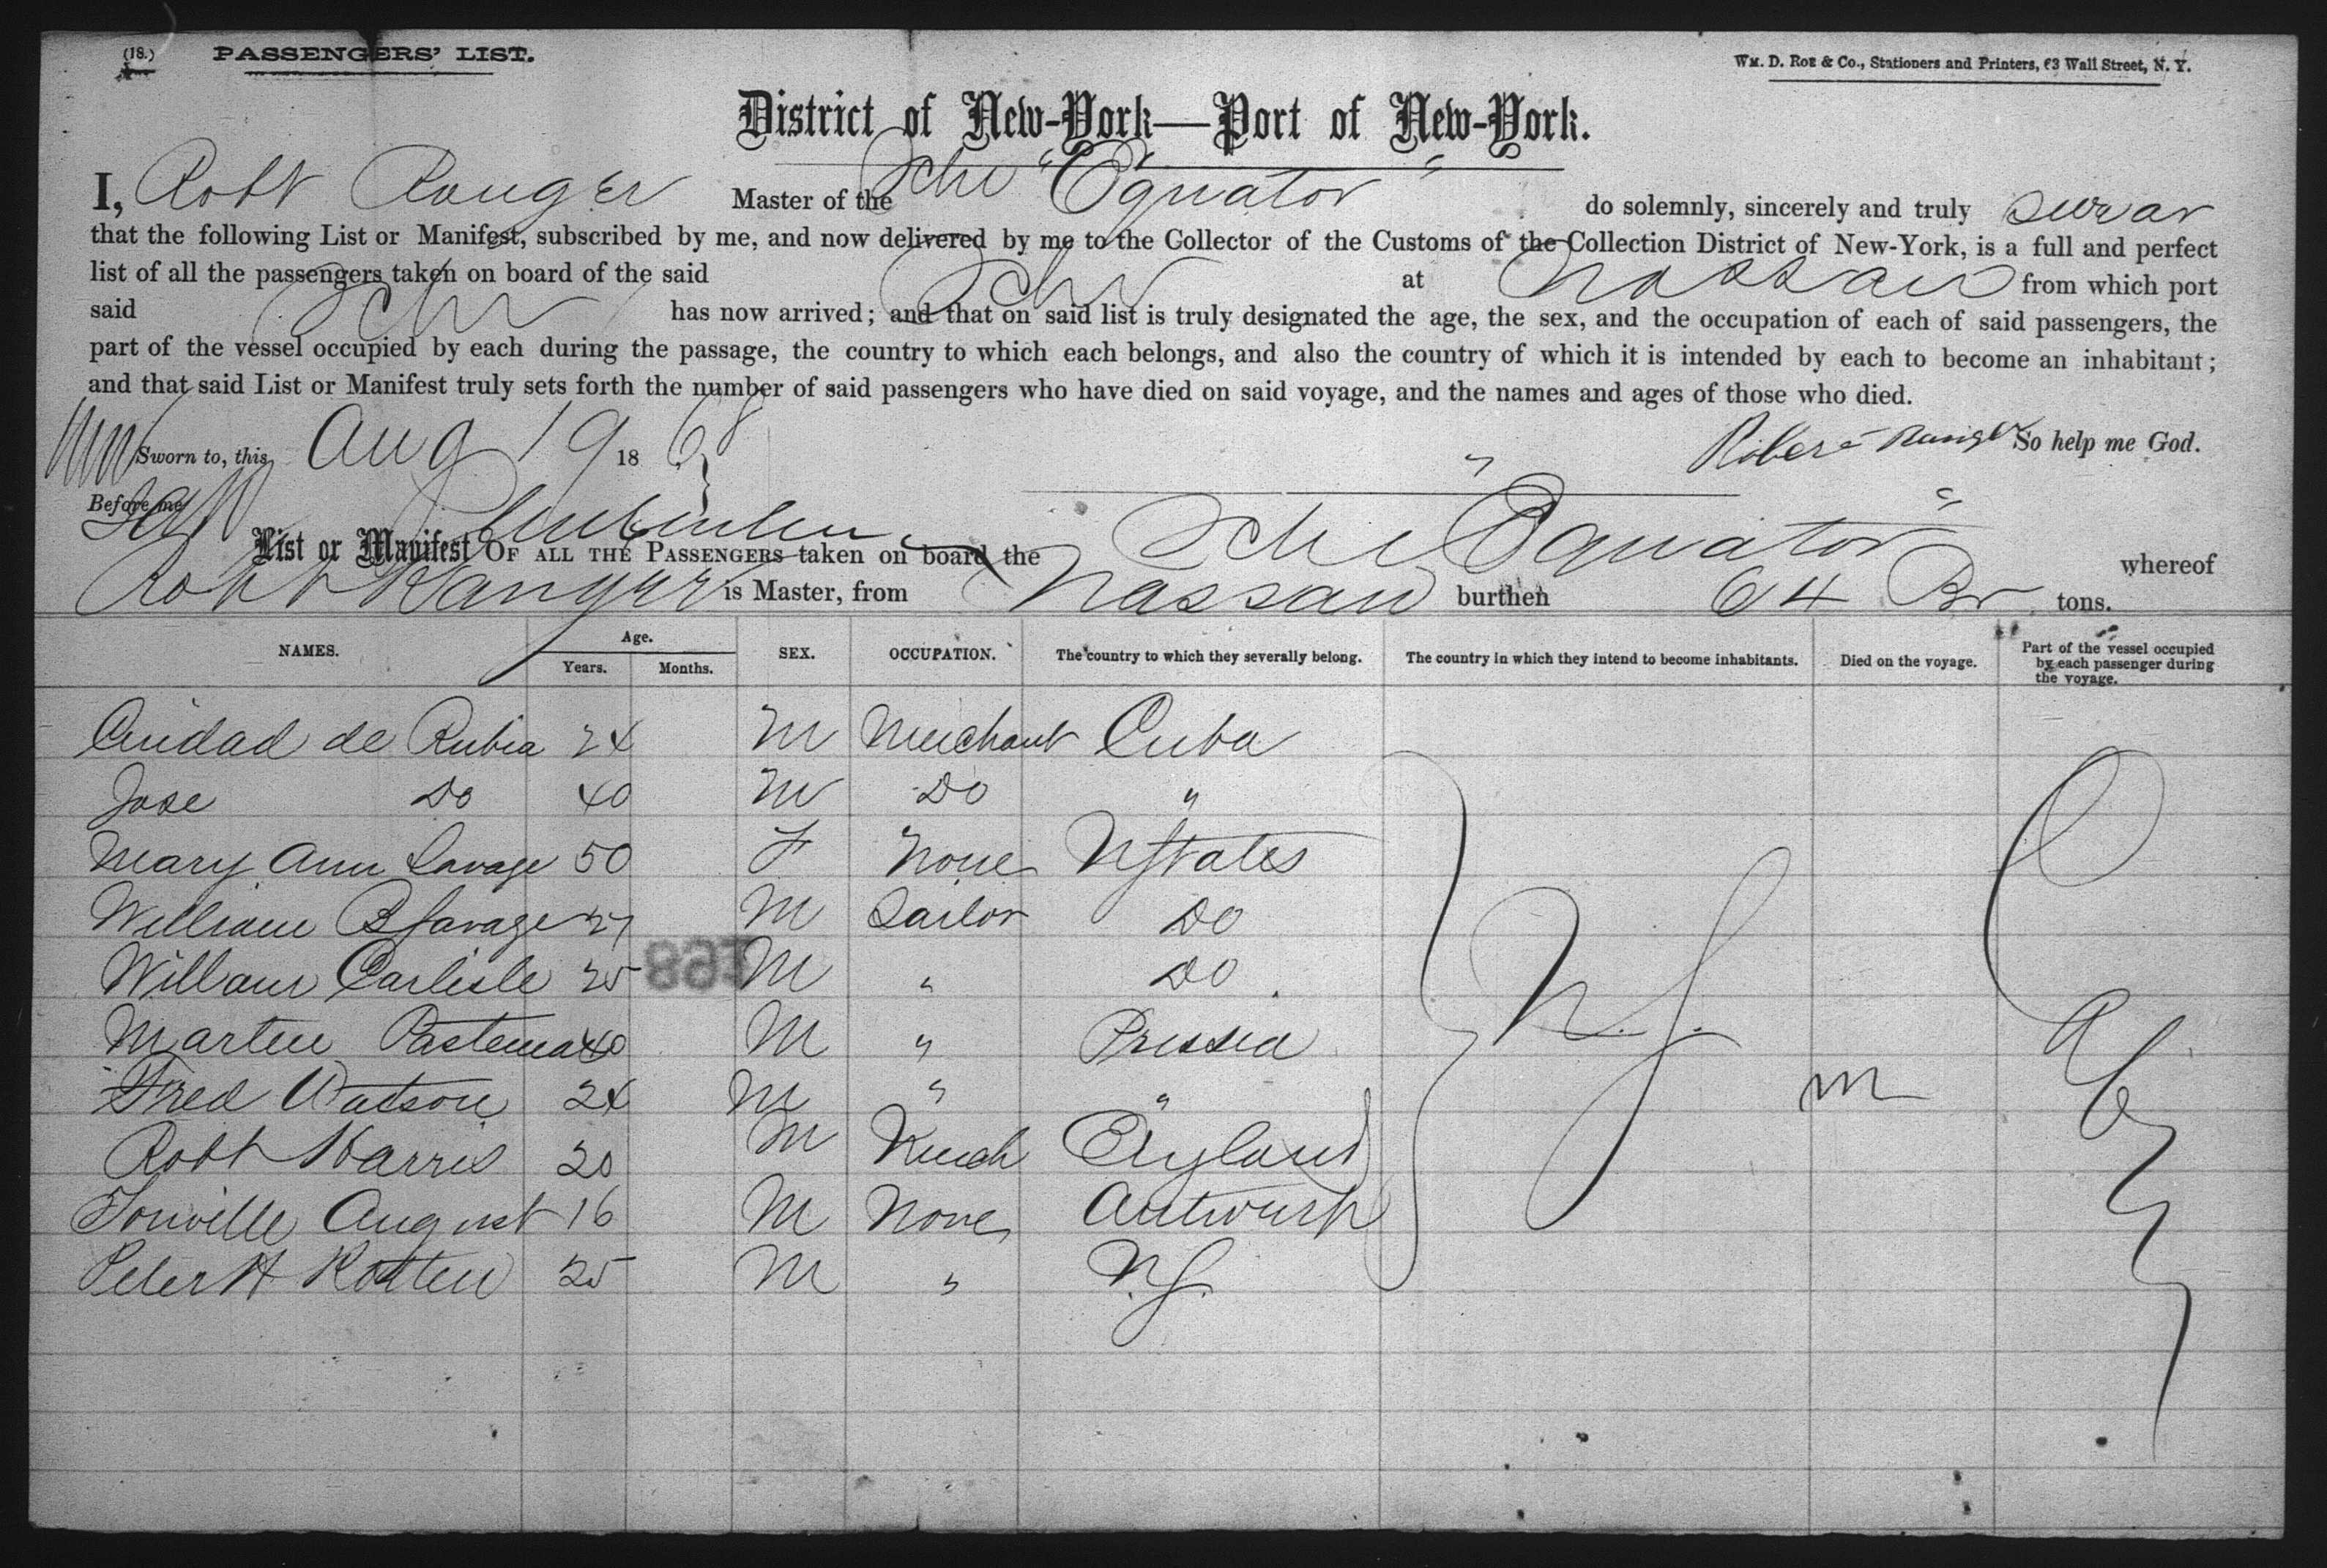 (18.) PASSENGERS' LIST. Wm. D. Roe & Co., Stationers and Printers, 63 Wall Street, N. Y.
District of New-York—Port of New-York.
I, Robt Ranger Master of the Schr "Equator" do solemnly, sincerely and truly swear
that the following List or Manifest, subscribed by me, and now delivered by me to the Collector of the Customs of the Collection District of New-York, is a full and perfect
list of all the passengers taken on board of the said Schr at Nassau from which port
said Schr has now arrived; and that on said list is truly designated the age, the sex, and the occupation of each of said passengers, the
part of the vessel occupied by each during the passage, the country to which each belongs, and also the country of which it is intended by each to become an inhabitant;
and that said List or Manifest truly sets forth the number of said passengers who have died on said voyage, and the names and ages of those who died.
Sworn to, this Aug 19 1868 Robert Ranger So help me God.
Before me
List or Manifest OF ALL THE PASSENGERS taken on board the Schr "Equator" whereof
Robt Ranger is Master, from Nassau burthen 64 Br tons.
NAMES. Age. Years. Months. SEX. OCCUPATION. The country to which they severally belong. The country in which they intend to become inhabitants. Died on the voyage. Part of the vessel occupied by each passenger during the voyage.
Ciudad de Rubia 24 M Merchant Cuba
Jose Do 40 M Do "
Mary Ann Savage 50 F None UStates
William B Savage 27 M Sailor Do
William Carlisle 25 M " Do
Martin Pastema 40 M " Prussia
Fred Watson 24 M " "
Robt Harris 20 M England
August 16 M None Antwerp
Peter H 25 M "